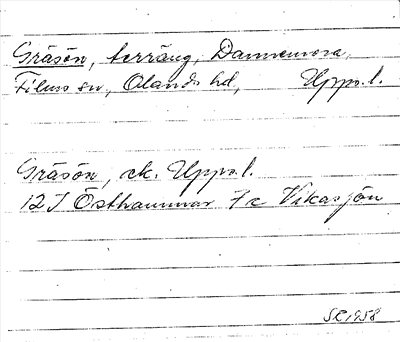 Gräsön, terräng, Dannemora,
Films sn., Olands hd, Upps.l.
Gräsön, ek. Upps.l.
12 I Östhammar 7 c Vikasjön
SR 1958